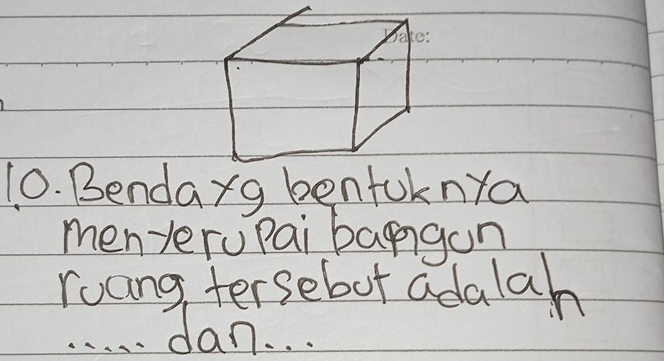 Date:
10. Benda yg bentuknya
menyerupai bangun
ruang tersebut adalah
..... dan...